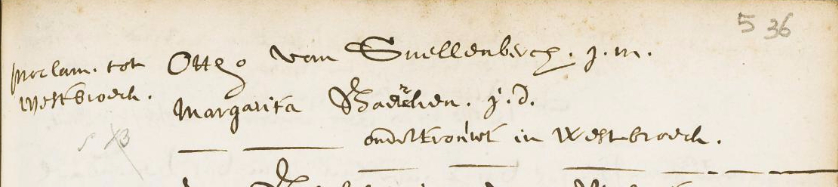 5 36
proclam. tot
Westbroeck.
Otto van Snellenberch. j. m.
Margarita j. d.
ondertrouwt in Westbroeck.